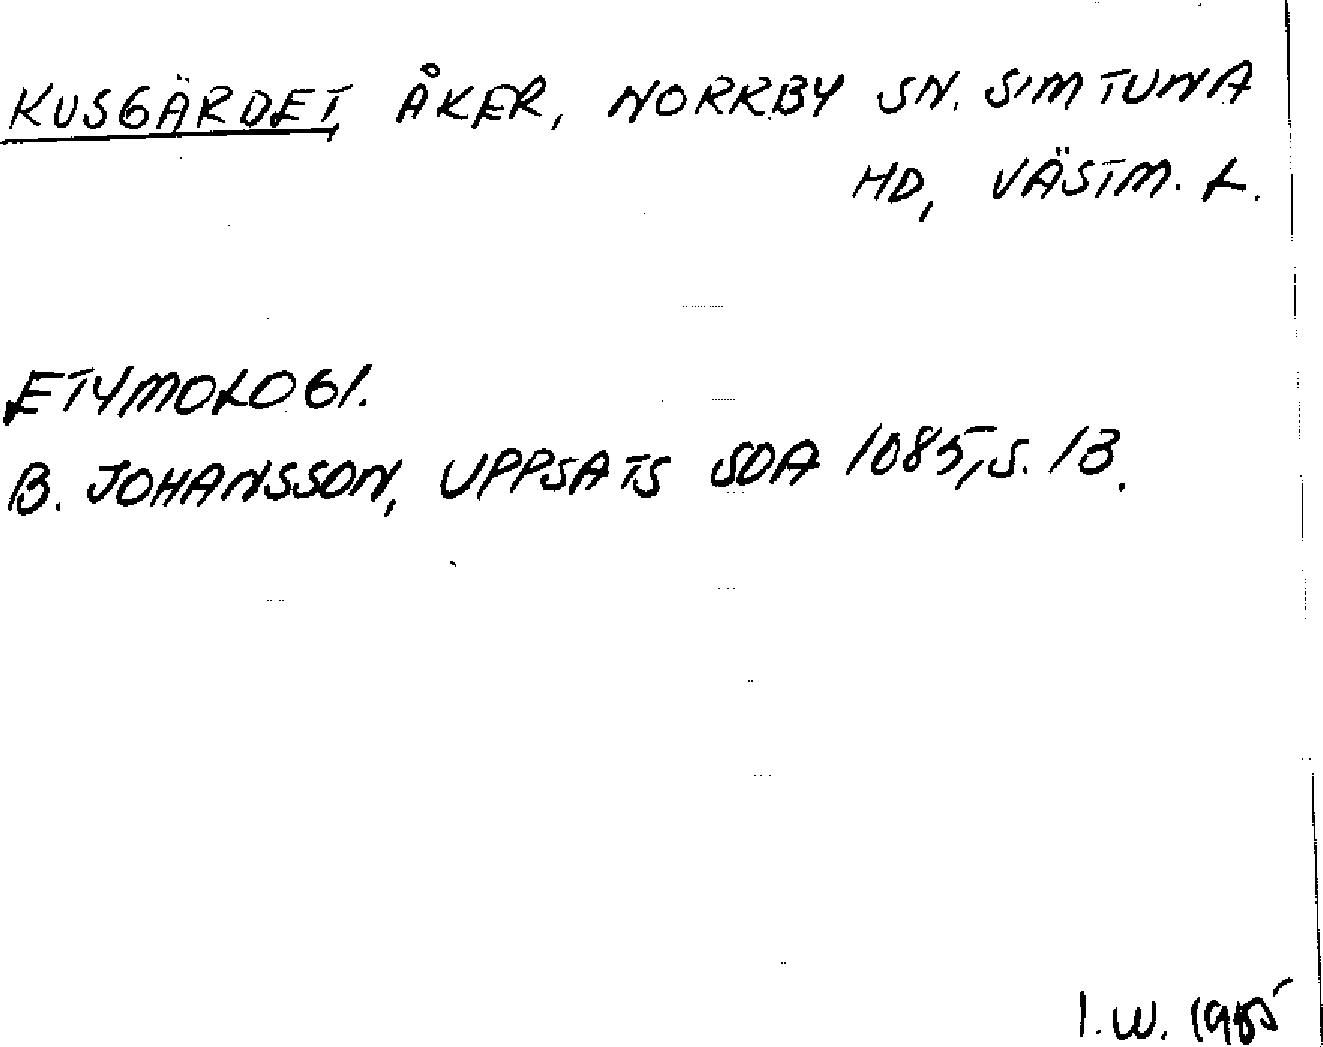 KUSGÄRDET, ÅKER, NORRBY SN. SIMTUNA
HD, VÄSTM. L.
ETYMOLOGI.
B. JOHANSSON, UPPSATS SOA 1085, S. 13.
I. W. 1985